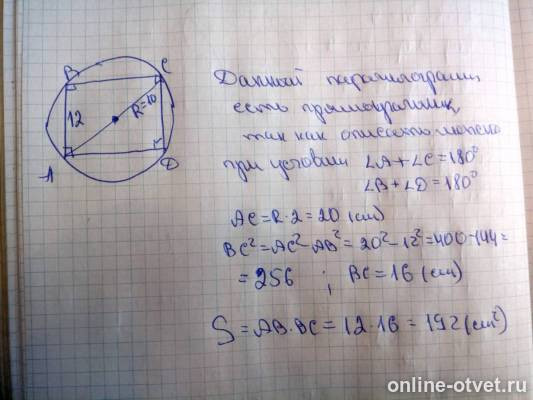 B
C
12
R=10
A
D
Данный параллелограмм
есть прямоугольник,
так как описать можно
при условии ∠A+∠C=180°
∠B+∠D=180°
AC=R·2=20 (см)
BC²=AC²-AB²=20²-12²=400-144=
=256 ; BC=16 (см)
S=AB·BC=12·16=192(см²)
online-otvet.ru